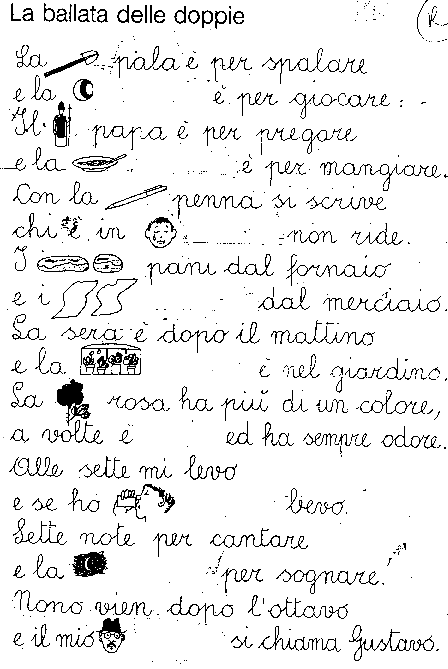 La ballata delle doppie
R
La pala è per spalare
e la è per giocare:
Il papa è per pregare
e la è per mangiare.
Con la penna si scrive
chi è in non ride.
I pani dal fornaio
e i dal merciaio.
La sera è dopo il mattino
e la è nel giardino.
La rosa ha più di un colore,
a volte è ed ha sempre odore.
Alle sette mi levo
e se ho bevo.
Sette note per cantare
e la per sognare.
Nono vien dopo l'ottavo
e il mio si chiama Gustavo.